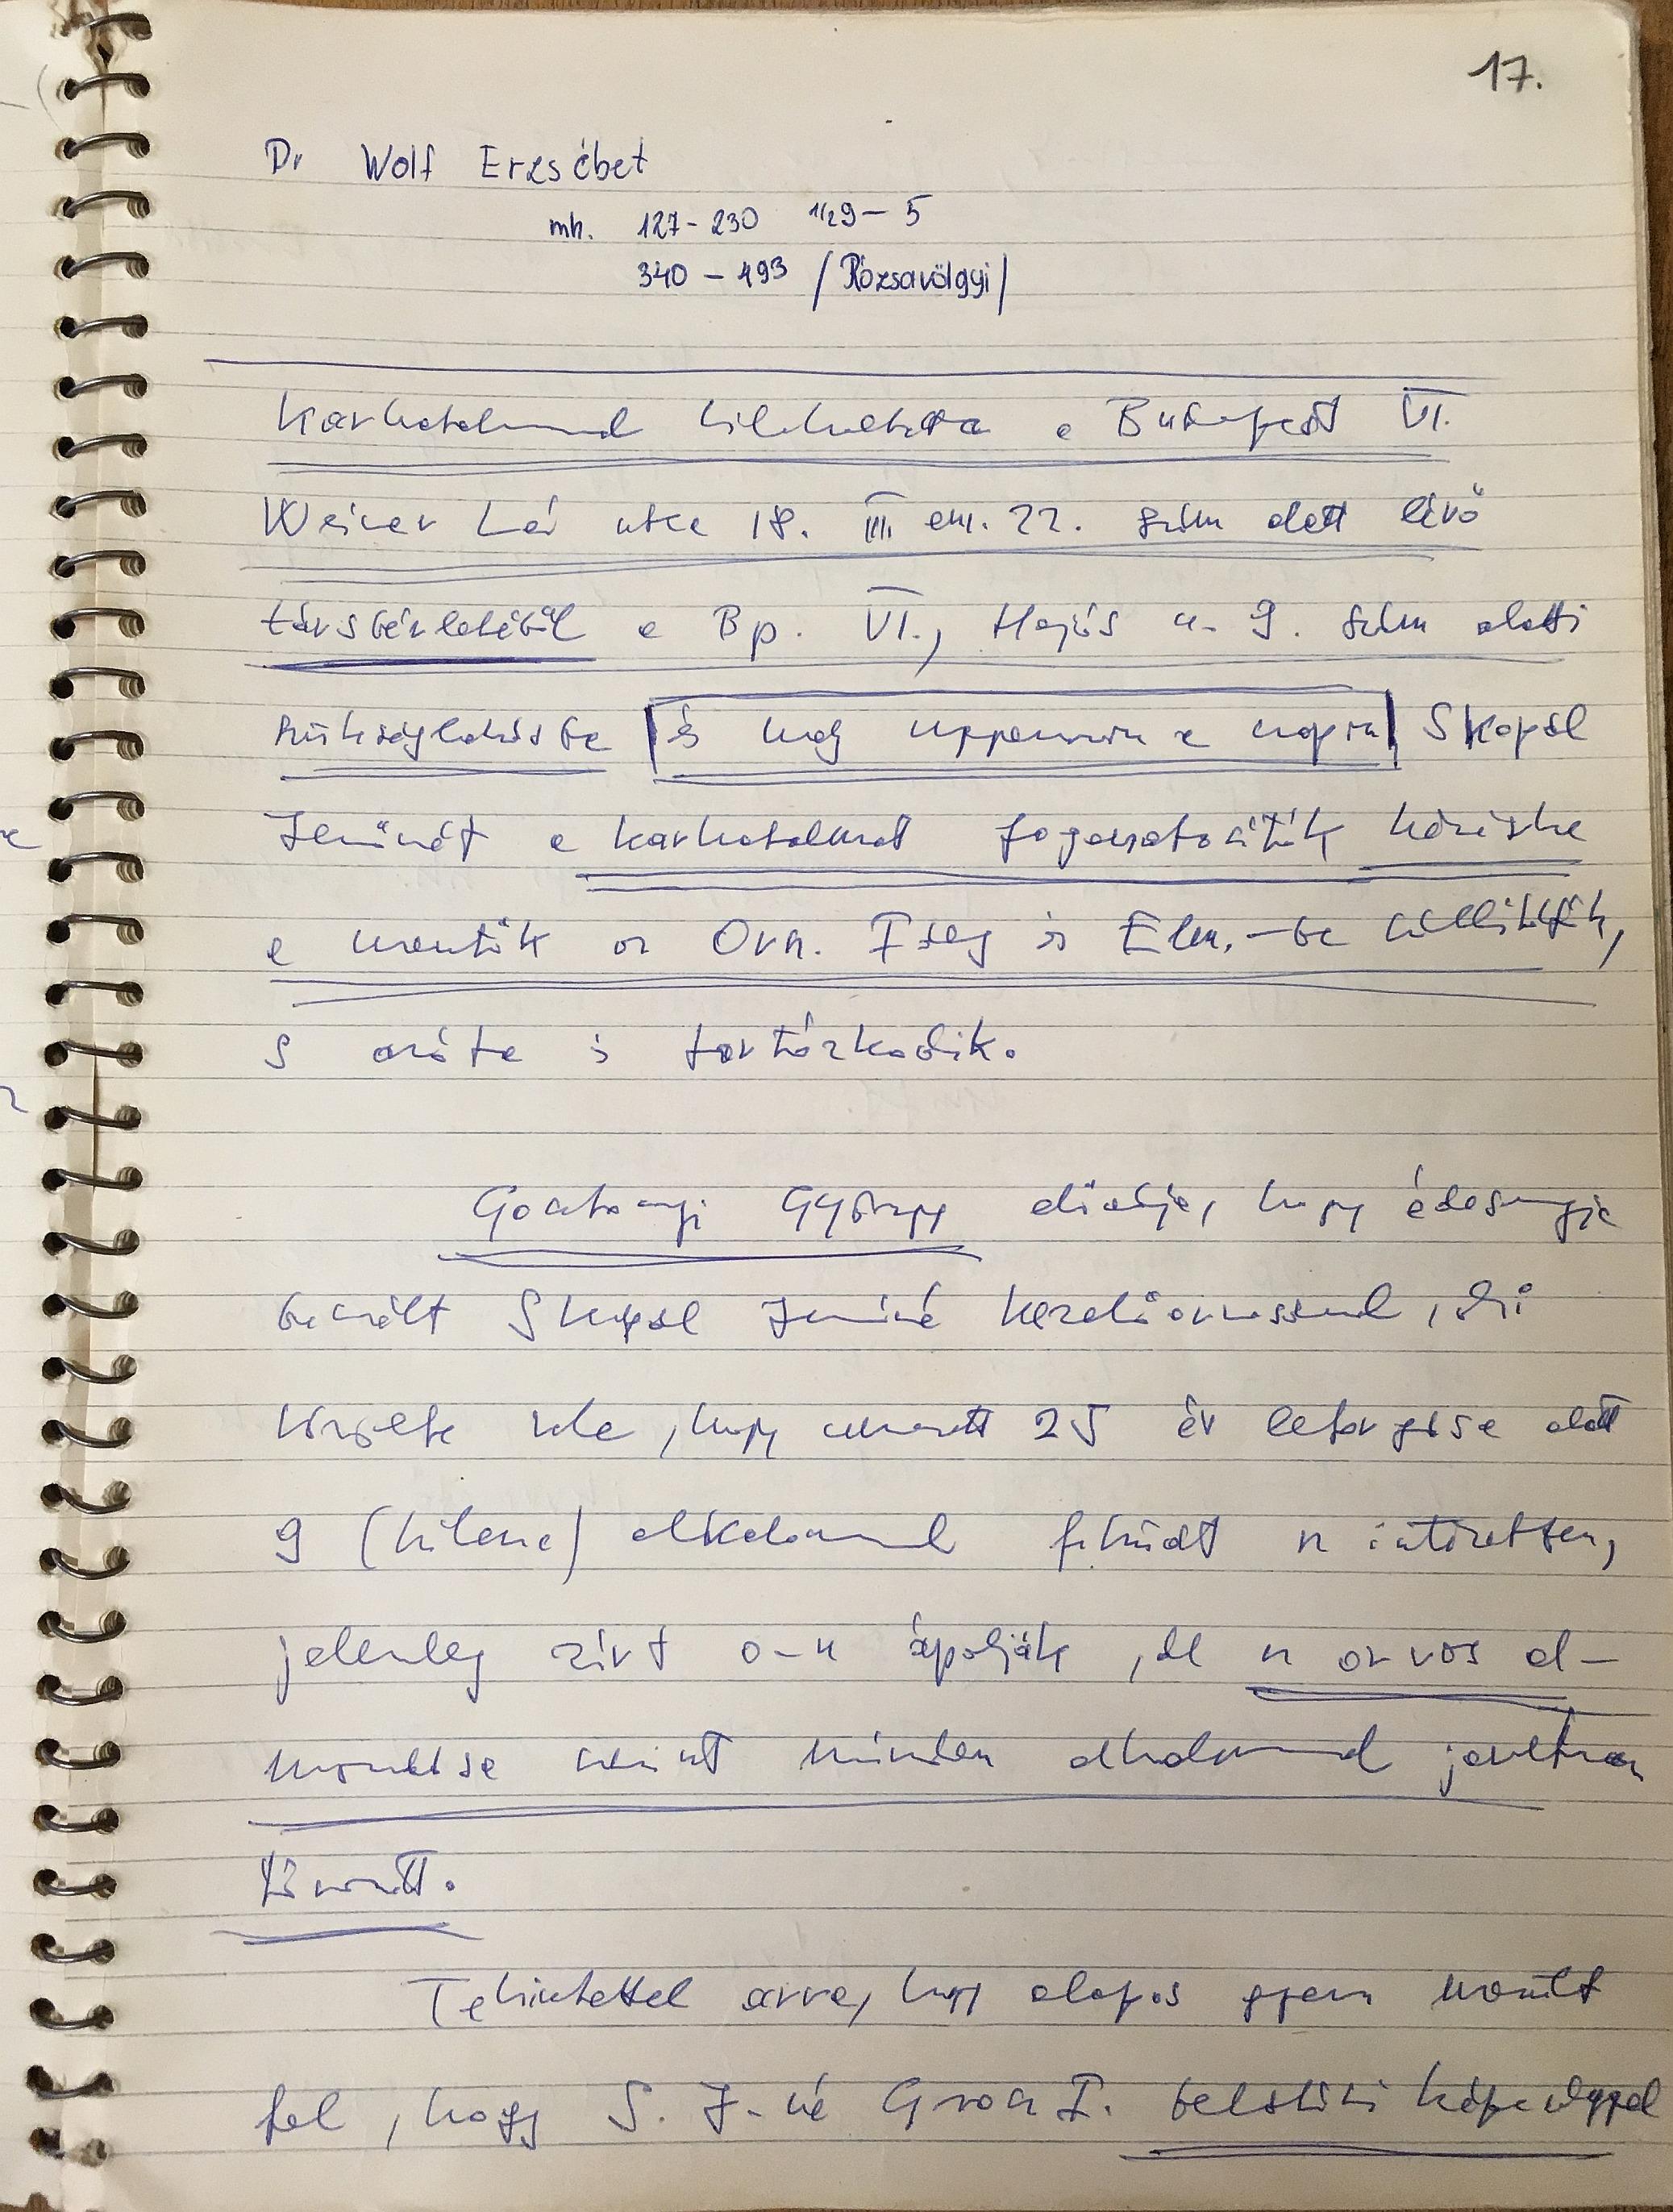 17.
Dr Wolf Erzsébet
mh. 127-230 1/29-5
340-493 /Rózsavölgyi/
Karhatalommal kilakoltatta a Budapest VI.
Weiner Leó utca 18. III. em. 22. szám alatt lévő
társbérletéből a Bp. VI., Hajós u. 9. szám alatti
szükséglakásba és még ugyanezen a napon Skopál
Jenőnét a karhatalmat foganatosítók kérésére
a mentők az Orsz. Ideg és Elm.-be szállították,
s azóta is tartózkodik.
György előadja, hogy édesanyja
beszélt Skopál Jenőné kezelőorvossal, aki
közölte vele, hogy nevezett 25 év leforgása alatt
9 (kilenc) alkalommal feküdt az intézetben,
jelenleg zárt o-n ápolják, de az orvos el-
mondása szerint minden alkalommal javultan
távozott.
Tekintettel arra, hogy alapos gyanú merült
fel, hogy S. J-né belátási képességgel